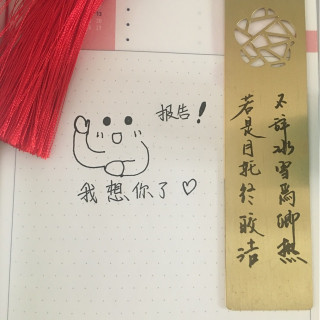 报告！
我想你了♡
若是月轮终皎洁
不辞冰雪為卿热